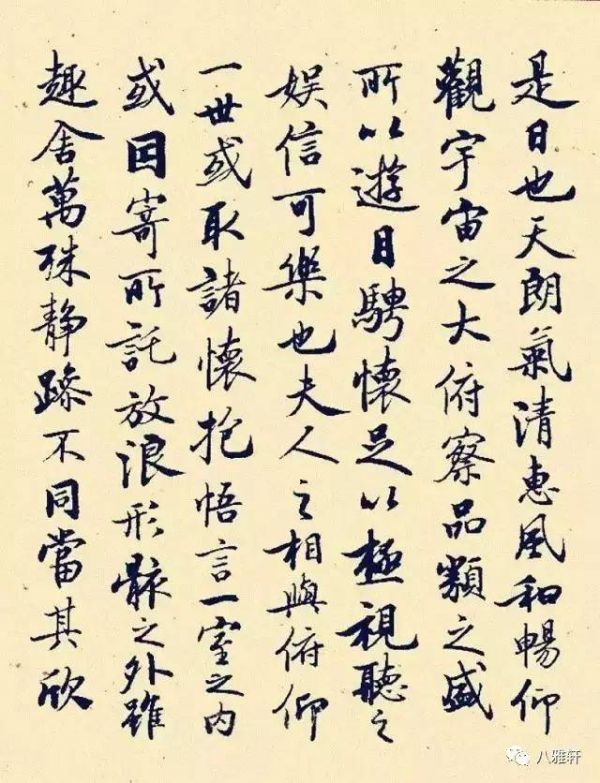 是日也天朗氣清惠風和暢仰
觀宇宙之大俯察品類之盛
所以遊目騁懷足以極視聽之
娛信可樂也夫人之相與俯仰
一世或取諸懷抱悟言一室之内
或因寄所託放浪形骸之外雖
趣舍萬殊静躁不同當其欣
八雅轩